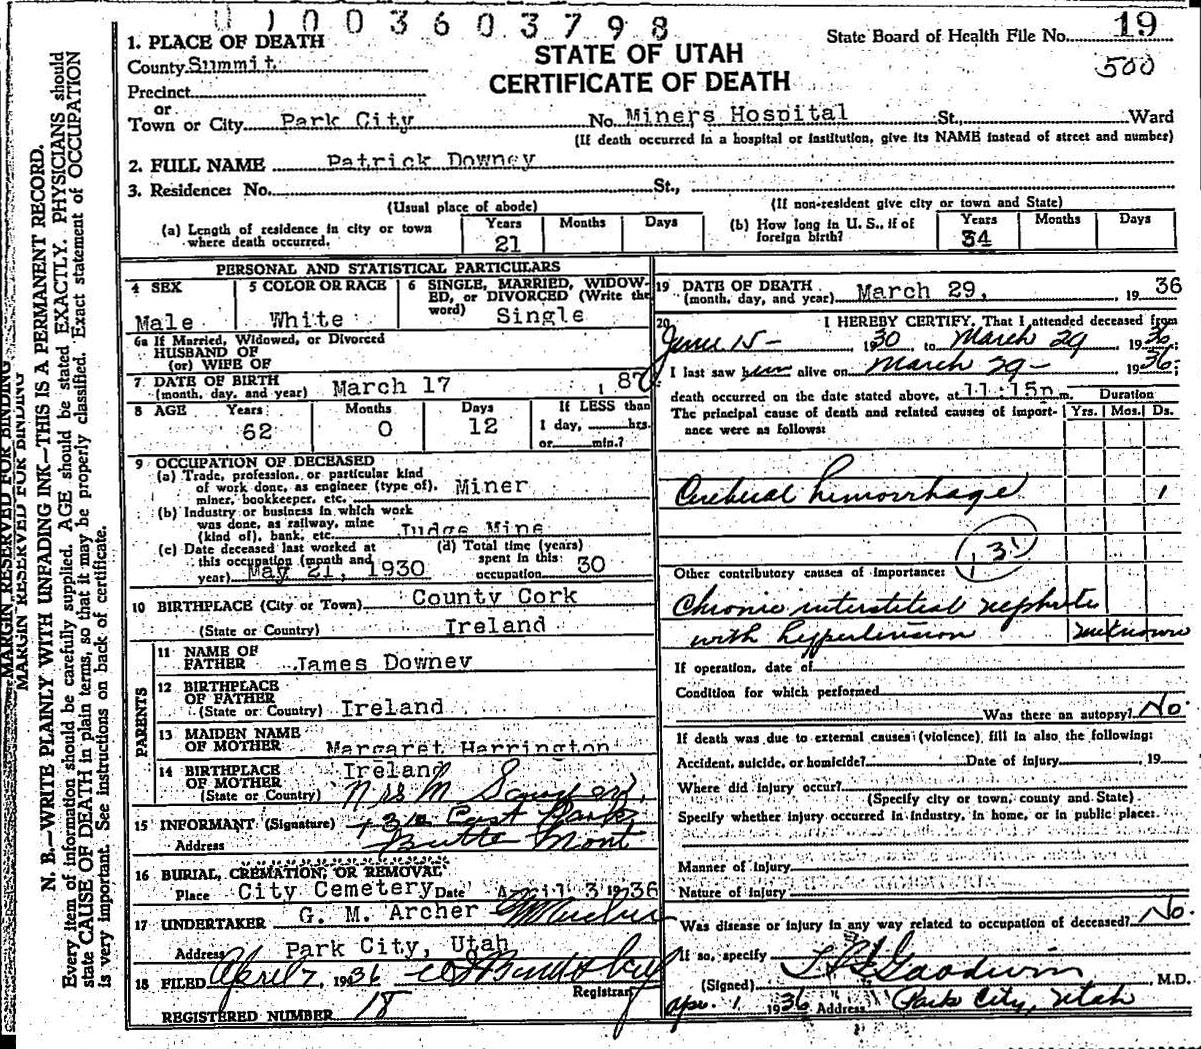 U 1 0 0 3 6 0 3 7 9 8
1. PLACE OF DEATH
County Summit
Precinct
or
Town or City Park City
STATE OF UTAH
CERTIFICATE OF DEATH
State Board of Health File No. 19
500
No. Miners Hospital St., Ward
(If death occurred in a hospital or institution, give its NAME instead of street and number)
2. FULL NAME Patrick Downey
3. Residence: No. St.,
(Usual place of abode) (If non-resident give city or town and State)
(a) Length of residence in city or town where death occurred. Years 21 Months Days
(b) How long in U. S., if of foreign birth? Years 34 Months Days
PERSONAL AND STATISTICAL PARTICULARS
4 SEX Male
5 COLOR OR RACE White
6 SINGLE, MARRIED, WIDOWED, or DIVORCED (Write the word) Single
6a If Married, Widowed, or Divorced
HUSBAND OF
(or) WIFE OF
7 DATE OF BIRTH
(month, day, and year) March 17
8 AGE Years 62 Months 0 Days 12 If LESS than
1 day, hrs.
or min.?
9 OCCUPATION OF DECEASED
(a) Trade, profession, or particular kind
of work done, as engineer (type of),
miner, bookkeeper, etc. Miner
(b) Industry or business in which work
was done, as railway, mine
(kind of), bank, etc. Judge Mine
(c) Date deceased last worked at
this occupation (month and
year) May 21, 1930
(d) Total time (years)
spent in this
occupation 30
10 BIRTHPLACE (City or Town) County Cork
(State or Country) Ireland
PARENTS
11 NAME OF
FATHER James Downey
12 BIRTHPLACE
OF FATHER
(State or Country) Ireland
13 MAIDEN NAME
OF MOTHER Margaret Harrington
14 BIRTHPLACE
OF MOTHER
(State or Country) Ireland
15 INFORMANT (Signature) Mrs M
Address East Park
Butte Mont
16 BURIAL, CREMATION, OR REMOVAL
Place City Cemetery Date April 3 1936
17 UNDERTAKER G. M. Archer
Address Park City, Utah
18 FILED April 7, 1936
Registrar
REGISTERED NUMBER 18
19 DATE OF DEATH
(month, day, and year) March 29, , 19 36
20 I HEREBY CERTIFY, That I attended deceased from
June 15 - 1930, to March 29 1936;
I last saw him alive on March 29 - 1936;
death occurred on the date stated above, at 11:15p m.
The principal cause of death and related causes of importance were as follows:
Duration
Yrs. Mos. Ds.
Cerebral hemorrhage 1
131
Other contributory causes of importance:
Chronic interstitial nephritis
with hypertension unknown
If operation, date of
Condition for which performed
Was there an autopsy? No.
If death was due to external causes (violence) fill in also the following:
Accident, suicide, or homicide? Date of injury , 19
Where did injury occur?
(Specify city or town, county and State)
Specify whether injury occurred in industry, in home, or in public place:
Manner of injury
Nature of injury
Was disease or injury in any way related to occupation of deceased? No.
If so, specify
(Signed) Goodwin , M.D.
Apr. 1 1936 Address Park City, Utah
MARGIN RESERVED FOR BINDING
MARGIN RESERVED FOR BINDING
N. B.—WRITE PLAINLY WITH UNFADING INK—THIS IS A PERMANENT RECORD.
Every item of information should be carefully supplied. AGE should be stated EXACTLY. PHYSICIANS should
state CAUSE OF DEATH in plain terms, so that it may be properly classified. Exact statement of OCCUPATION
is very important. See instructions on back of certificate.